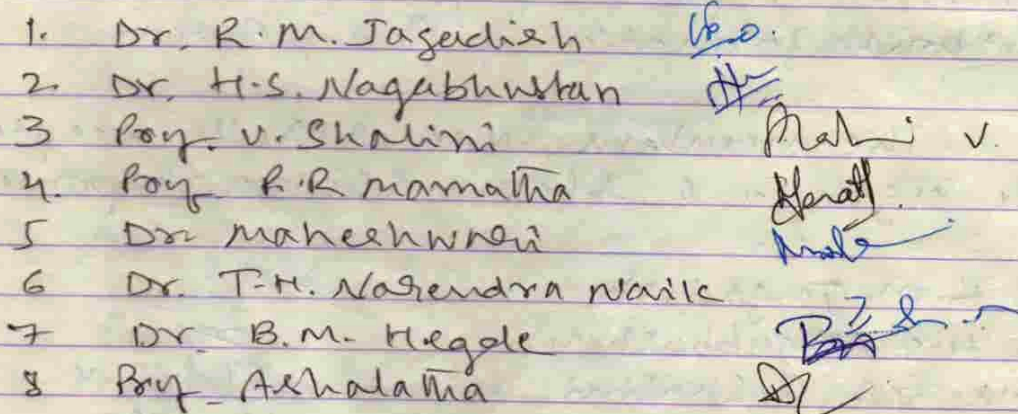 1. Dr. R.M. Jagadish
2. Dr. H.S. Nagabhushan
3 Prof. V. Shalini
4. Prof. R.R Mamatha
5 Dr. Maheshwari
6 Dr. T.H. Narendra Naik
7 Dr. B.M. Hegde
8 Prof. Ashalatha